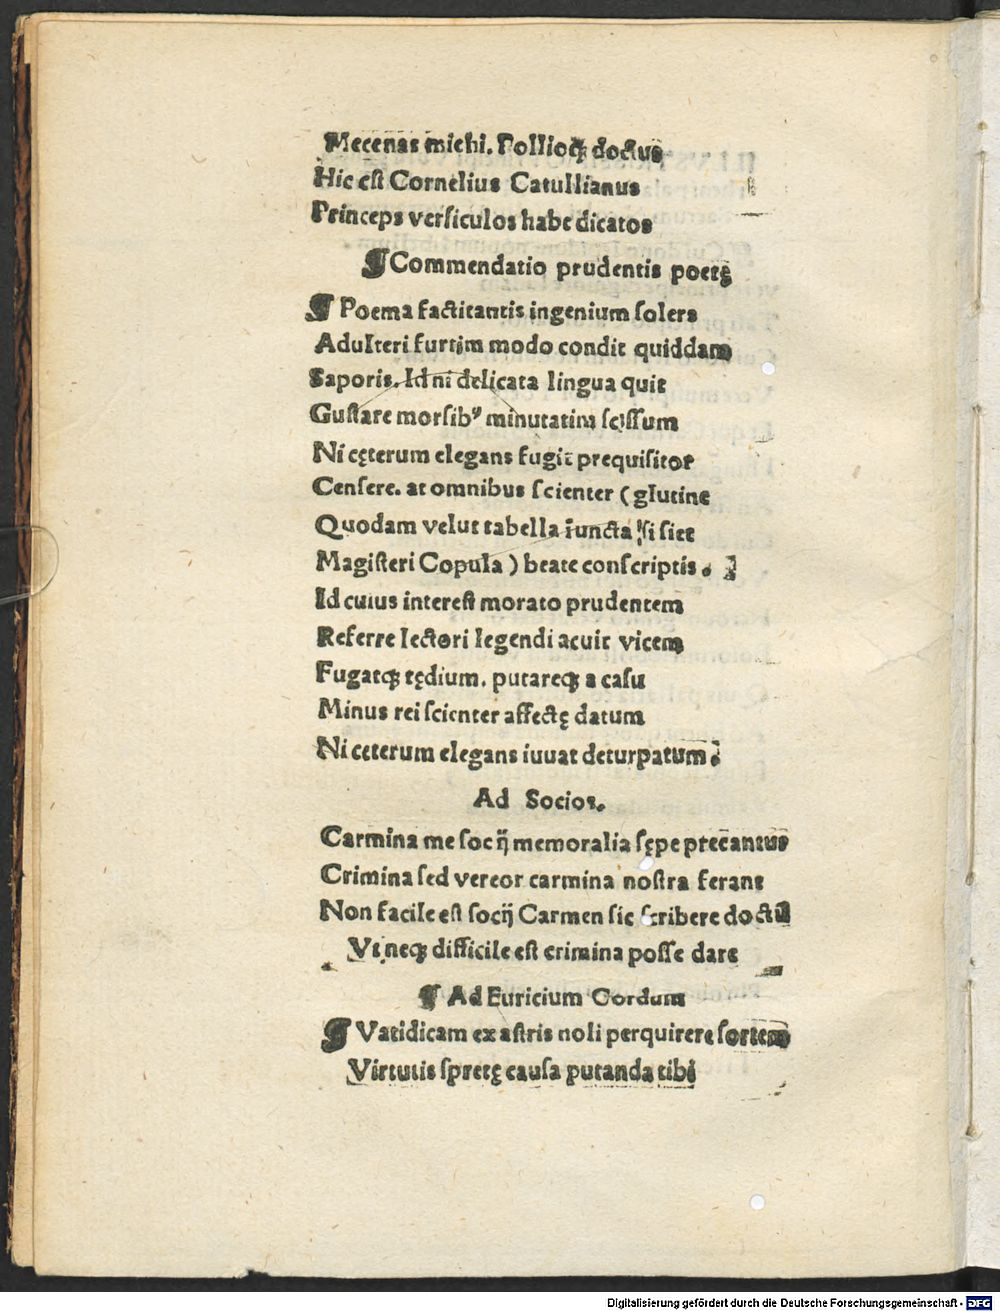 Mecenas michi. Pollioqꝫ doctus
Hic eſt Cornelius Catullianus
Princeps verſiculos habe dicatos
¶ Commendatio prudentis poetę
¶ Poema factitantis ingenium ſolers
Adulteri furtim modo condit quiddam
Saporis. Id ni delicata lingua quit
Guſtare morſibꝰ minutatim ſciſſum
Ni cęterum elegans fugit prequiſitor
Cenſere. at omnibus ſcienter (glutine
Quodam velut tabella iuncta ſi ſiet
Magiſteri Copula) beate conſcriptis.
Id cuius intereſt morato prudentem
Referre lectori legendi acuit vicem
Fugatqꝫ tędium. putareqꝫ a caſu
Minus rei ſcienter affectę datum
Ni ceterum elegans iuuat deturpatum.
Ad Socios.
Carmina me ſocij memoralia ſępe precantur
Crimina ſed vereor carmina noſtra ferant
Non facile eſt ſocij Carmen ſic ſcribere doctū
Vt neqꝫ difficile eſt crimina poſſe dare
¶ Ad Euricium Cordum
¶ Vatidicam ex aſtris noli perquirere ſortem
Virtutis ſpretę cauſa putanda tibi
Digitalisierung gefördert durch die Deutsche Forschungsgemeinschaft - DFG